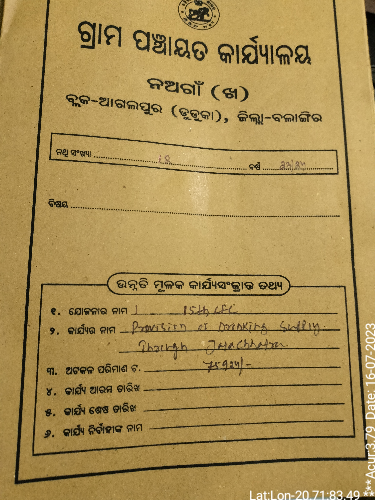 ଗ୍ରାମ ପଞ୍ଚାୟତ କାର୍ଯ୍ୟାଳୟ
ନଅଗାଁ (ଖ)
ବ୍ଲକ-ଆଗଲପୁର (ଡୁଡୁକା), ଜିଲ୍ଲା-ବଲାଙ୍ଗିର
ନଥି ସଂଖ୍ୟା ବର୍ଷ
ବିଷୟ
ଉନ୍ନତି ମୂଳକ କାର୍ଯ୍ୟସଂକ୍ରାନ୍ତ ତଥ୍ୟ
୧. ଯୋଜନାର ନାମ 15th CFC
୨. କାର୍ଯ୍ୟର ନାମ Provision of Drinking Supply
Through Jalachhatra
୩. ଅଟକଳ ପରିମାଣ ଟ.
୪. କାର୍ଯ୍ୟ ଆରମ୍ଭ ତାରିଖ
୫. କାର୍ଯ୍ୟ ଶେଷ ତାରିଖ
୬. କାର୍ଯ୍ୟ ନିର୍ବାହୀଙ୍କ ନାମ
Lat:Lon-20.71:83.49
***Acur:3.79 Date: 16-07-2023